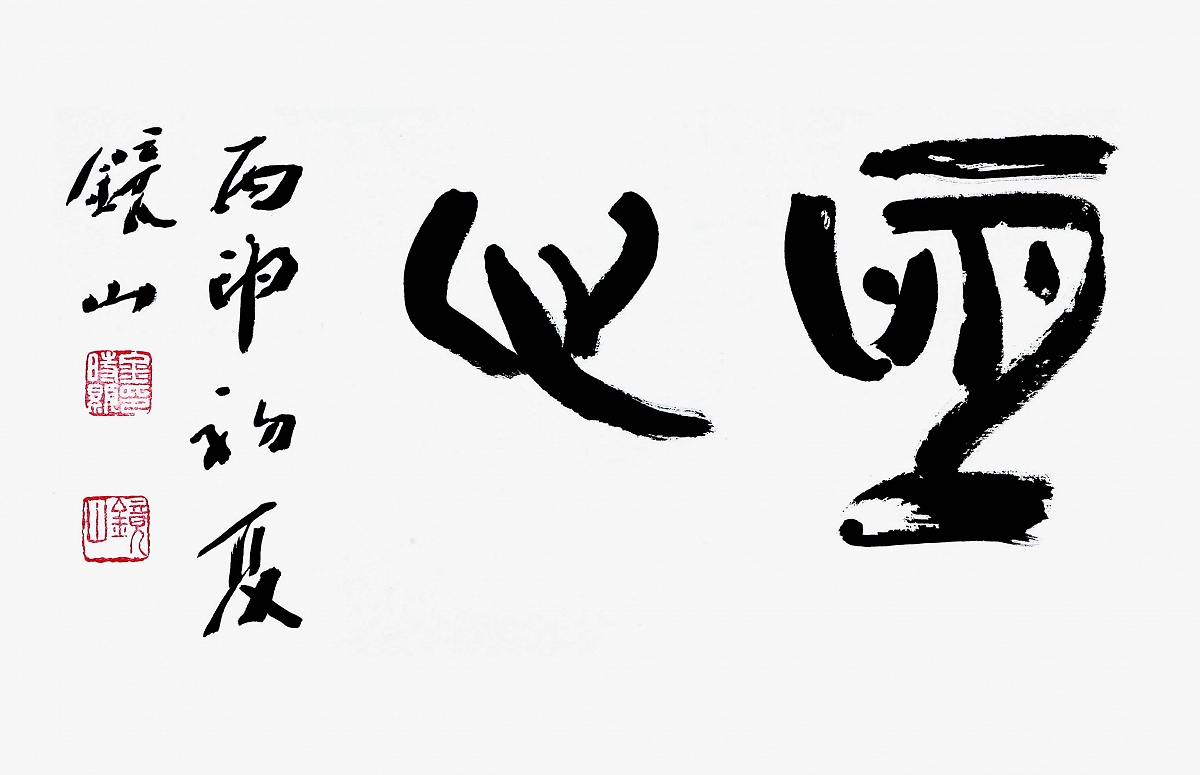 恆心
丙申初夏
鏡山
鏡山